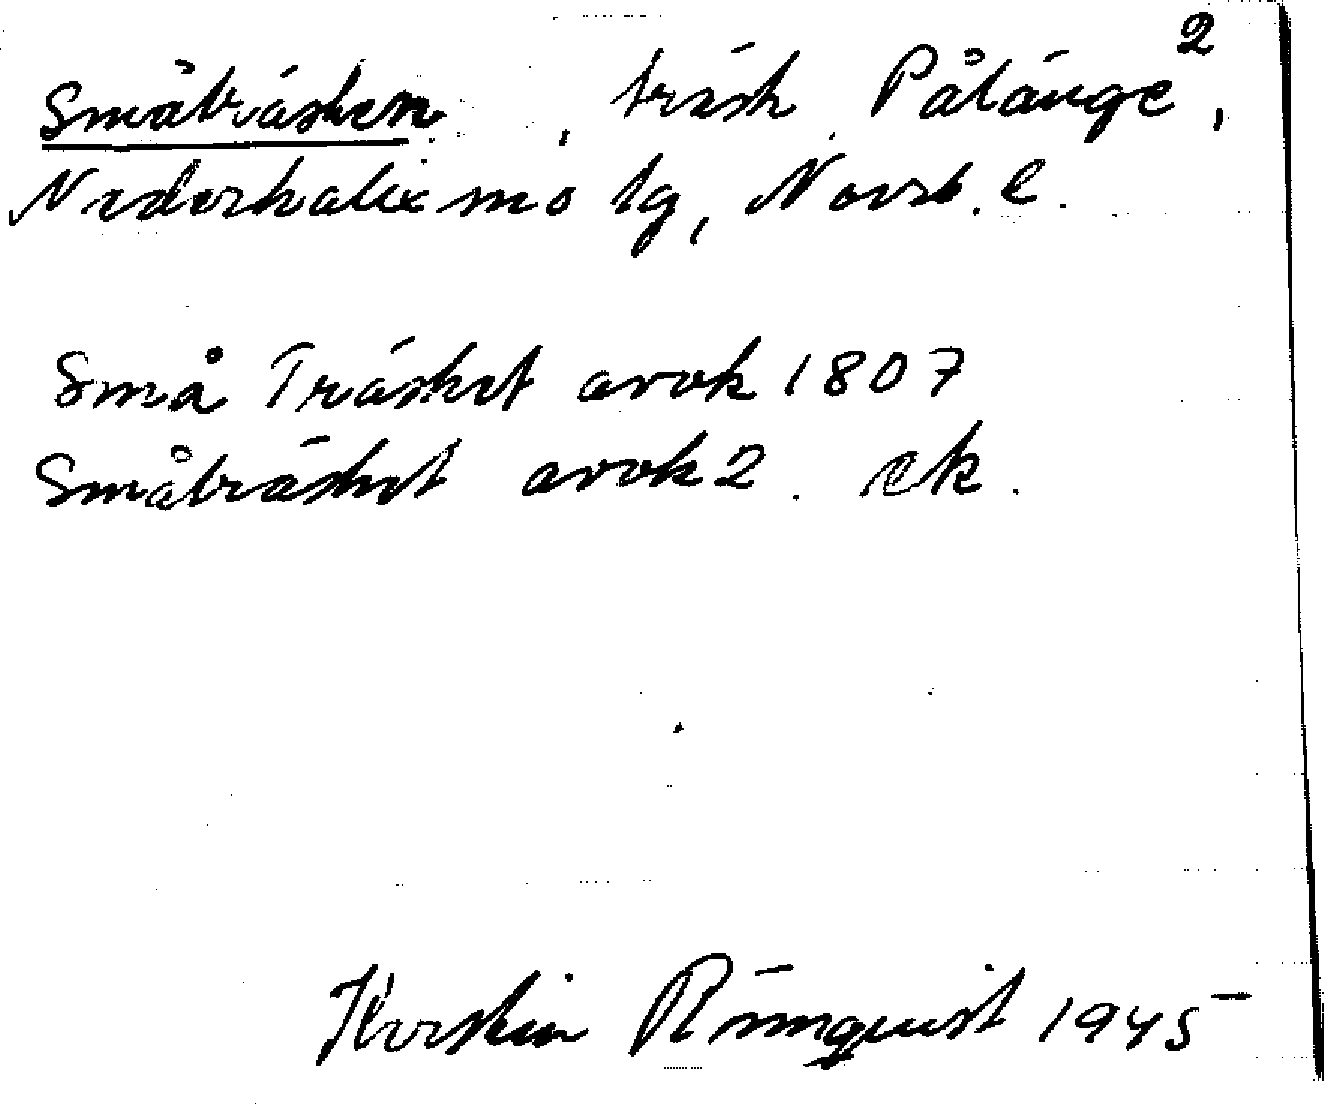 Småträsken, träsk Pålänge²,
Nederkalix sn o tg, Norrb. l.
Små Träsket avok 1807
Småträsket avok 2. ek.
Kerstin Rönnquist 1945